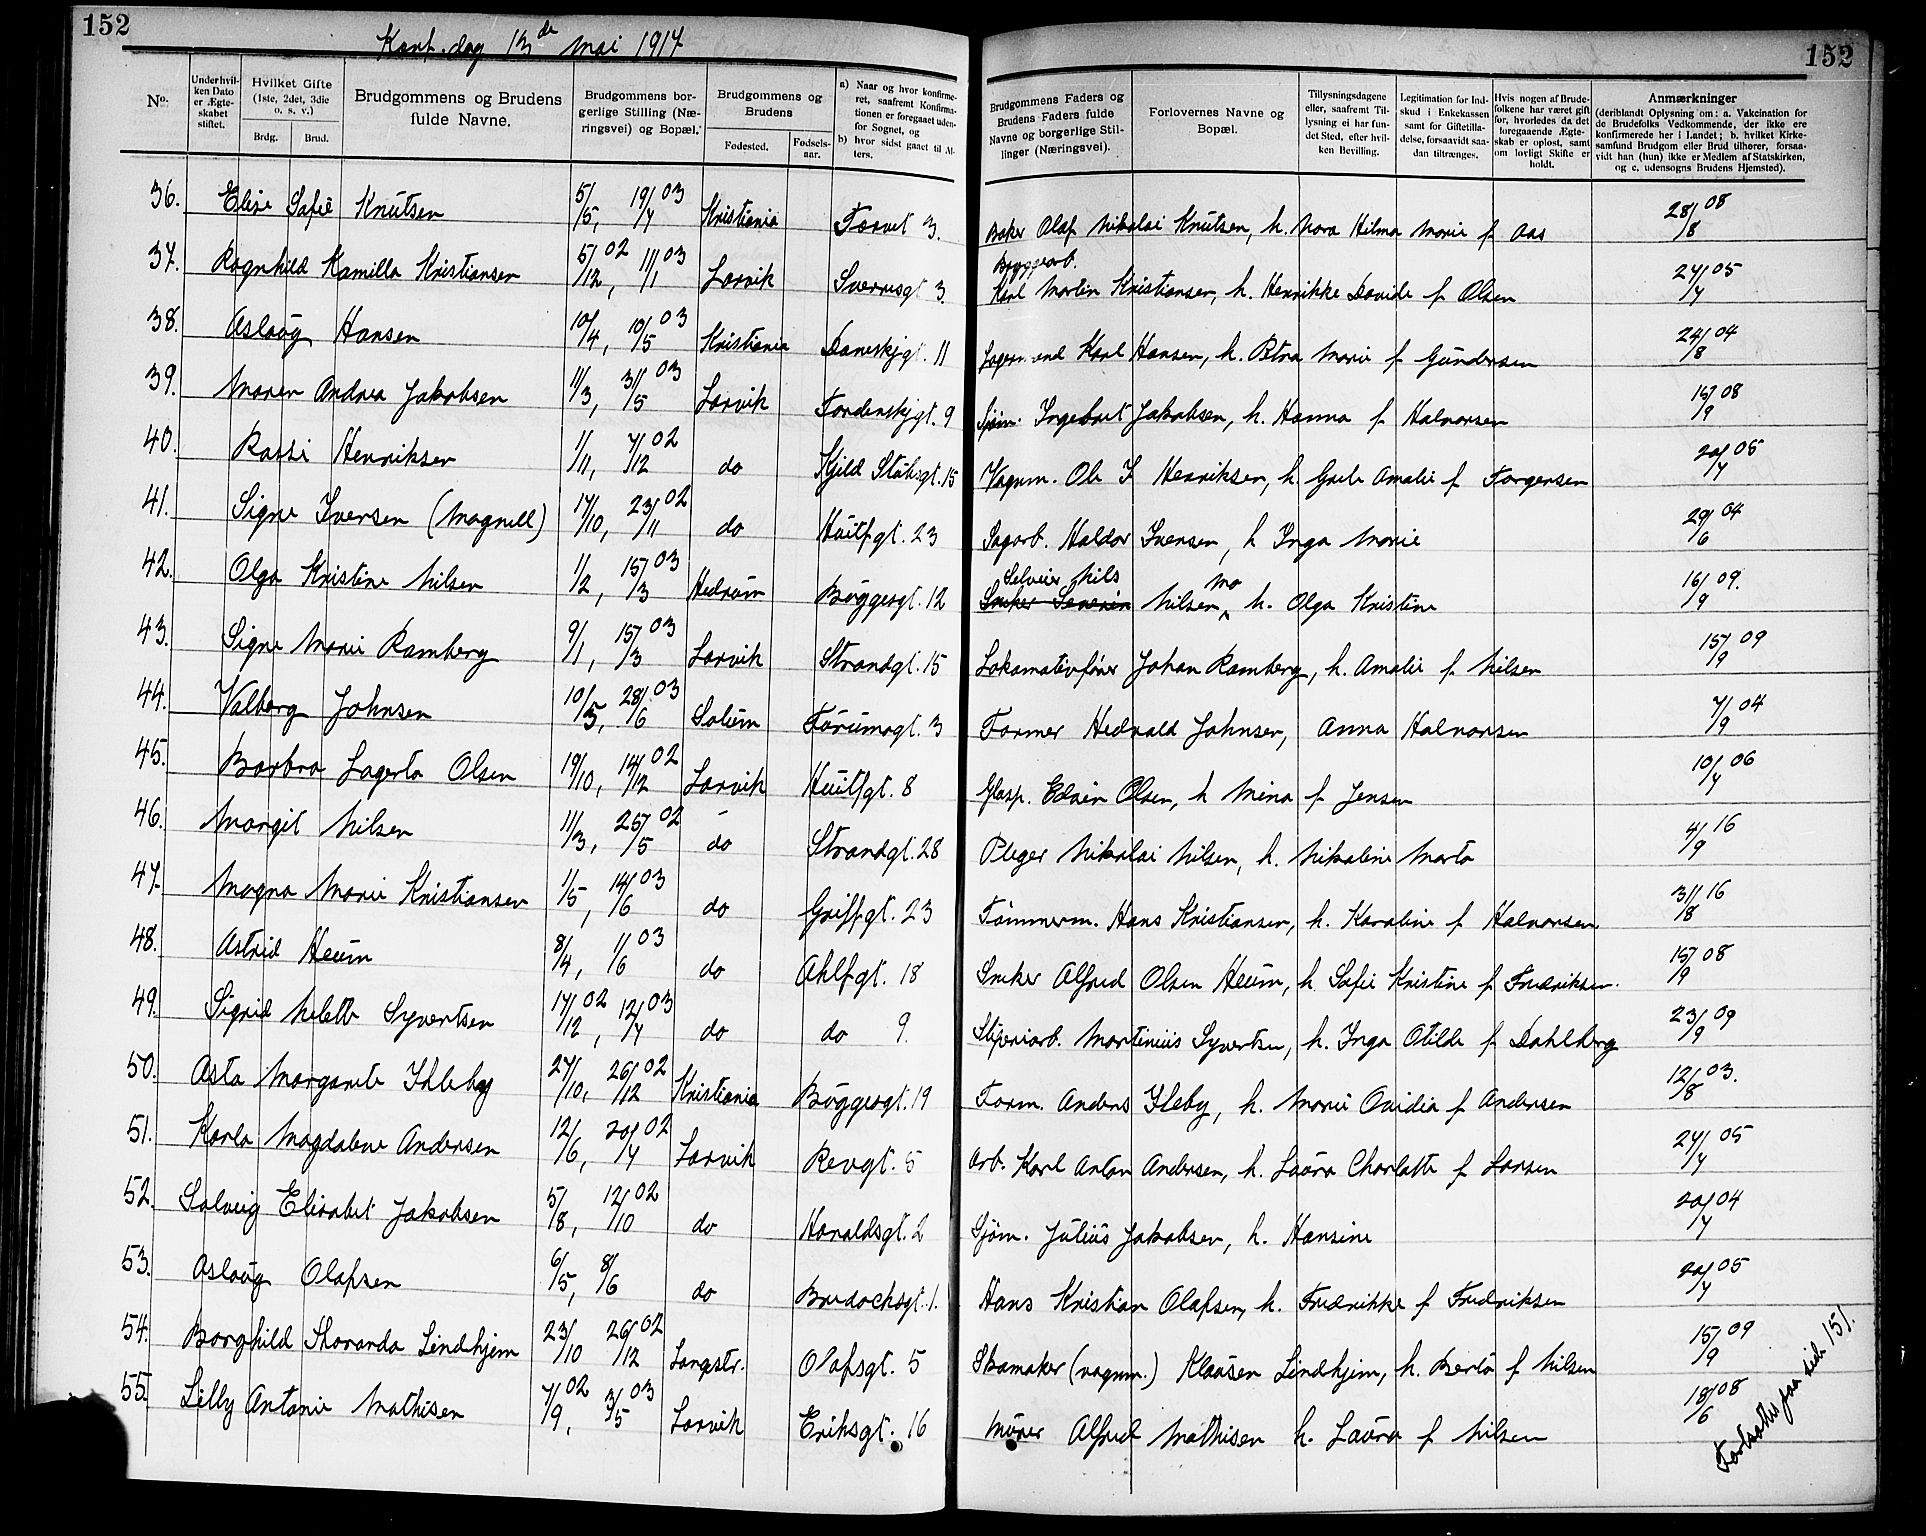 152
Konf. dag 13de Mai 1917
152
No.
Under hvilken Dato er Ægteskabet stiftet.
Hvilket Gifte (1ste, 2det, 3die o. s. v.)
Brdg. Brud.
Brudgommens og Brudens fulde Navne.
Brudgommens borgerlige Stilling (Næringsvei) og Bopæl.
Brudgommens og Brudens
Fødested. Fødselsaar.
a) Naar og hvor konfirmeret, saafremt Konfirmationen er foregaaet udenfor Sognet, og
b) hvor sidst gaaet til Alters.
Brudgommens Faders og Brudens Faders fulde Navne og borgerlige Stillinger (Næringsvei).
Forlovernes Navne og Bopæl.
Tillysningsdagene eller, saafremt Tillysning ei har fundet Sted, efter hvilken Bevilling.
Legitimation for Indskud i Enkekassen samt for Giftetilladelse, forsaavidt saadan tiltrænges.
Hvis nogen af Brudefolkene har været gift før, hvorledes da det foregaaende Ægteskab er opløst, samt om lovligt Skifte er holdt.
Anmærkninger
(deriblandt Oplysning om: a. Vakcination for de Brudefolks Vedkommende, der ikke ere konfirmerede her i Landet; b. hvilket Kirkesamfund Brudgom eller Brud tilhører, forsaavidt han (hun) ikke er Medlem af Statskirken, og c. udensogns Brudens Hjemsted).
36. Elise Sofie Knutsen 5/5, 19/7 03 Kristiania Torvet 3. Baker Olaf Nikolai Knutsen, h. Nora Hilma Marie f Aas 28/8 08
37. Ragnhild Kamilla Kristiansen 5/12 02, 11/1 03 Larvik Sverresgt 3. Bryggearb. Karl Martin Kristiansen, h. Henrikke Davida f Olsen 27/7 05
38. Aslaug Hansen 10/4, 10/5 03 Kristiania Daneskjgt. 11 Karl Hansen, h. Petra Marie f Gundersen 24/8 04
39. Maren Andrea Jakobsen 11/3, 31/5 03 Larvik Tordenskjgt. 9 Sjøm. Ingebret Jakobsen, h. Hanna f Halvorsen 15/9 08
40. Rassi Henriksen 1/11, 7/12 02 do Kjeld Stubsgt. 15 Vognm. Ole J Henriksen, h. Grete Amalie f Torgersen 20/7 05
41. Signe Iversen (Magnill) 17/10, 23/11 02 do Huitfgt. 23 Sagarb. Haldor Iversen, h Inga Marie 29/6 04
42. Olga Kristine Nilsen 1/2, 15/3 03 Hedrum Bøggesgt. 12 Selveier Nils Sneker Severin Nilsen, mo h. Olga Kristine 16/9 09.
43. Signe Marie Ramberg 9/1, 15/3 03 Larvik Strandgt. 15 Lokomotivfører Johan Ramberg, h. Amalie f. Nilsen 15/9 09
44. Valborg Johnsen 10/5, 28/6 03 Solum Torumsgt. 3 Former Hedvald Johnsen, Anna Halvorsen 7/9 04
45. Barbra Lagerta Olsen 19/10, 14/12 02 Larvik Huitfgt. 8 Glasp. Edvin Olsen, h Mina f Jensen 10/7 06
46. Margit Nilsen 11/3, 25/5 02 do Strandgt. 28 Pleger Nikolai Nilsen, h. Nikoline Marta 4/9 16
47. Magna Marie Kristiansen 1/5, 14/6 03 do Griffgt. 23 Tømmerm. Hans Kristiansen, h. Karoline f Halvorsen 31/8 16
48. Astrid Heum 8/4, 1/6 03 do Ahlfgt. 18 Sneker Alfred Olsen Heum, h Sofie Kristine f Fredriksen. 15/9 08
49. Sigrid Melette Syvertsen 17/12 02, 12/7 03 do do 9. Stiperiarb. Martinius Syvertsen, h. Inga Otilde f Dahlberg 23/9 09
50. Asta Margarete Ihleby 27/10, 26/12 02 Kristiania Bøggesgt. 19 Form. Anders Ileby, h. Marie Ovidia f Andersen 12/8 03.
51. Karla Magdalene Andersen 12/6, 20/7 02 Larvik Revgt. 5 Arb. Karl Anton Andersen, h. Laura Charlotte f Larsen 27/7 05
52. Solveig Elisabet Jakobsen 5/8, 12/10 02 do Haraldsgt. 2 Sjøm. Julius Jakobsen, h. Hansine 20/7 04
53. Aslaug Olafsen 6/5, 8/6 do Bredochsgt. 1. Hans Kristian Olafsen, h. Fredrikke f Fredriksen 20/7 05
54. Borghild Thoranda Lindhjem 23/10 26/12 02 Langestr. Olafsgt. 5 Skomaker (vognm.) Klausen Lindhjem, h. Berta f Nilsen 15/9 09
55. Lilly Antonie Mathisen 7/9 02, 3/5 03 Larvik Eriksgt. 16 Murer Alfred Mathisen h. Laura f Nilsen 18/6 08
Fortsættes paa side 151.